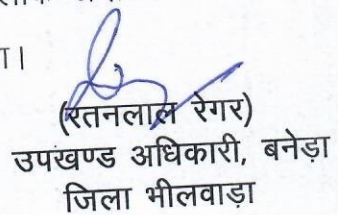 ा।
(रतनलाल रेगर)
उपखण्ड अधिकारी, बनेड़ा
जिला भीलवाड़ा